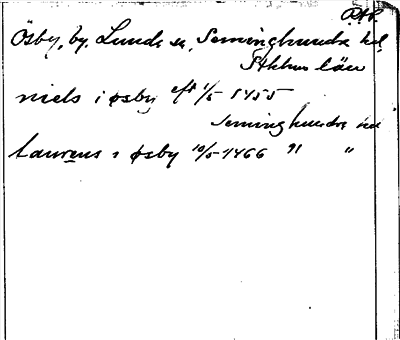 R.A.P.
Ösby, by, Lunda sn, Seminghundra hd,
Sthlms län
niels i øsby eft 1/5 1455
Seminghundra hd
laurens i øsby 10/5 1466 " "